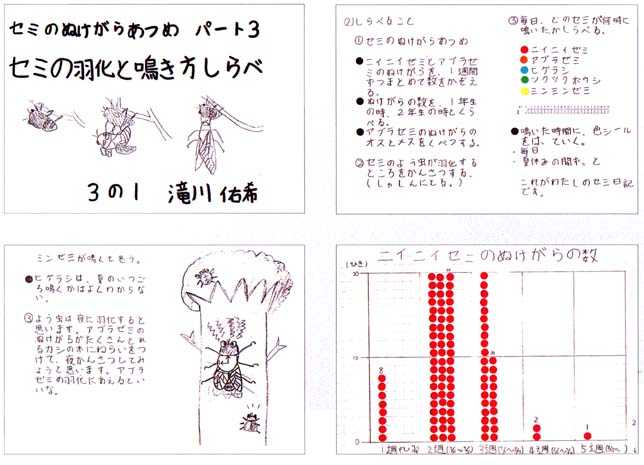 セミのぬけがらあつめ パート3
セミの羽化と鳴き方しらべ
3の1 滝川 佑希
(2)しらべること
①セミのぬけがらあつめ
●ニイニイゼミとアブラゼ
ミのぬけがらを、1週間
ずつまとめて数をかぞえ
る。
●ぬけがらの数を、1年生
の時、2年生の時とくら
べる。
●アブラゼミのぬけがらの
オスとメスをくべつする。
②セミのよう虫が羽化する
ところをかんさつする。
(しゃしんにとる。)
③毎日、どのセミが何時に
鳴いたかしらべる。
ニイニイゼミ
アブラゼミ
ヒグラシ
ツクツクホウシ
ミンミンゼミ
●鳴いた時間に、色シール
をはっていく。
・毎日
・夏休みの間中、と
これがわたしのセミ日記
です。
ミンゼミが鳴くと思う。
●ヒグラシは、夏のいつご
ろ鳴くかはよくわからな
い。
③よう虫は夜に羽化すると
思います。アブラゼミの
ぬけがらがたくさんとれ
るカシの木にねらいをつ
けて、夜かんさつしてみ
ようと思います。アブラ
ゼミの羽化にあえるとい
いな。
ニイニイゼミのぬけがらの数
(ひき)
10
8
2
1
2週
3週
4週
5週